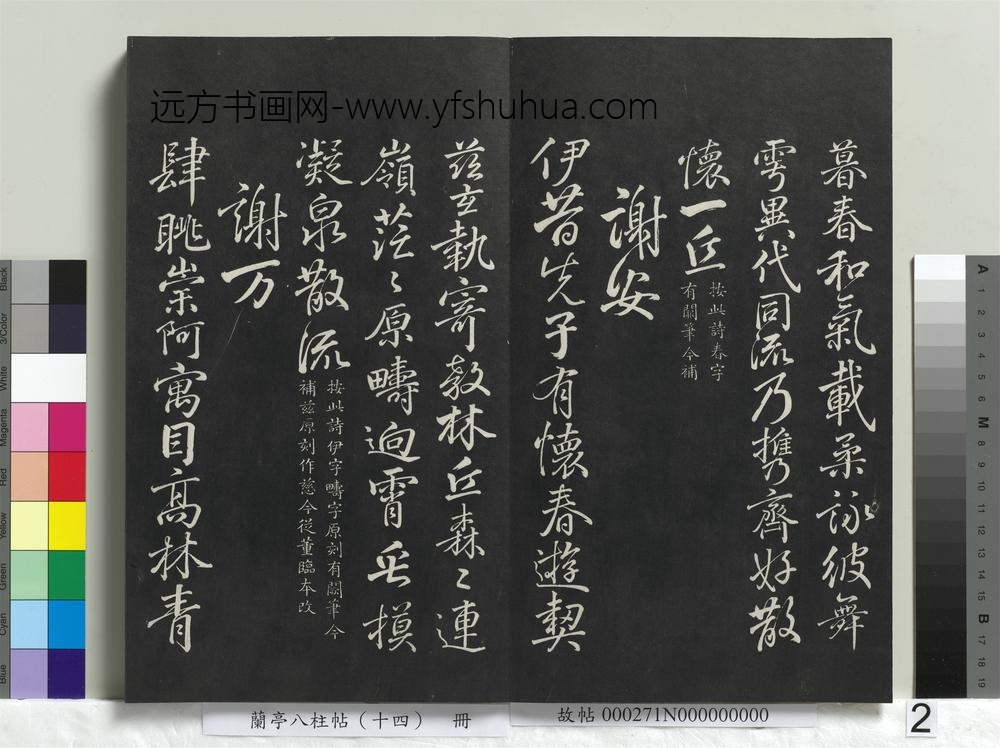 远方书画网-www.yfshuhua.com
暮春和氣載柔詠彼舞
雩異代同流乃攜齊好散
懷一丘
按此詩春字
有闕筆今補
謝安
伊昔先子有懷春遊契
茲玄執寄敖林丘森〻連
嶺茫〻原疇逈霄垂
凝泉散流
按此詩伊字疇字原刻有闕筆今
補茲原刻作慈今從董臨本改
謝万
肆眺崇阿寓目高林青
蘭亭八柱帖（十四） 冊
故帖 000271N000000000
2
Black
3/Color
White
Magenta
Red
Yellow
Green
Cyan
Blue
A 1 2 3 4 5 6 M 8 9 10 11 12 13 14 15 B 17 18 19